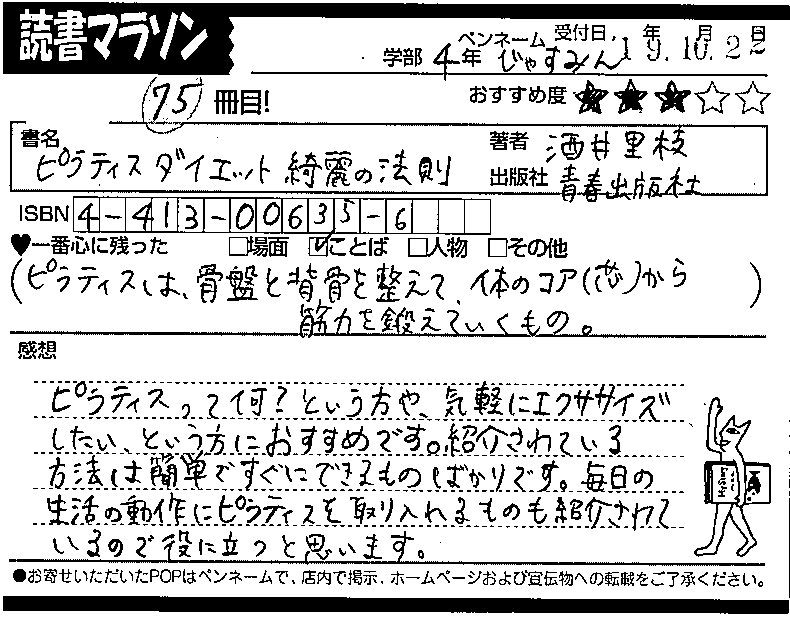 読書マラソン
学部 4年 ペンネーム じゃすみん 受付日. 19年.10月.22日
75 冊目!
おすすめ度 ★★★☆☆
書名 ピラティスダイエット 綺麗の法則
著者 酒井里枝
出版社 青春出版社
ISBN 4-413-00635-6
♥一番心に残った □場面 ☑ことば □人物 □その他
(ピラティスは、骨盤と背骨を整えて、体のコア(芯)から
筋力を鍛えていくもの。)
感想
ピラティスって何?という方や、気軽にエクササイズ
したい、という方におすすめです。紹介されている
方法は簡単ですぐにできるものばかりです。毎日の
生活の動作にピラティスを取り入れるものも紹介されて
いるので役に立つと思います。
●お寄せいただいたPOPはペンネームで、店内で掲示、ホームページおよび宣伝物への転載をご了承ください。